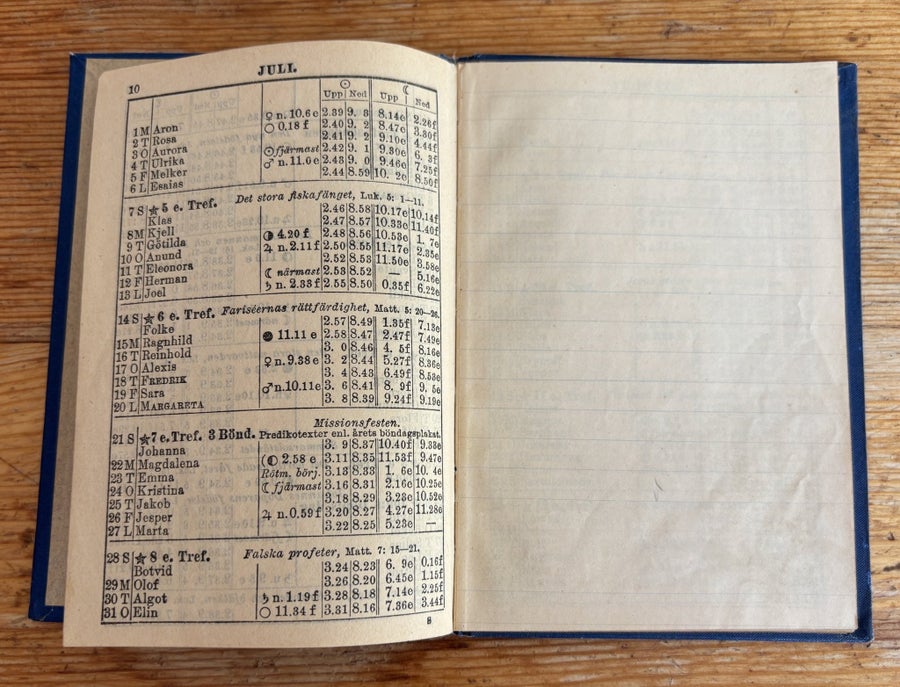 10 JULI.
☉ ☾
Upp Ned Upp Ned
1 M Aron ♀ n. 10.6 e 2.39 9. 3 8.14e 2.26f
2 T Rosa ○ 0.18 f 2.40 9. 2 8.47e 3.30f
3 O Aurora 2.41 9. 2 9.10e 4.44f
4 T Ulrika ☉ fjärmast 2.42 9. 1 9.30e 6. 3f
5 F Melker ♂ n. 11.0 e 2.43 9. 0 9.46e 7.25f
6 L Esaias 2.44 8.59 10. 2e 8.50f
7 S ★ 5 e. Tref. Det stora fiskafänget, Luk. 5: 1—11.
Klas 2.46 8.58 10.17e 10.14f
8 M Kjell 2.47 8.57 10.33e 11.40f
9 T Götilda ◑ 4.20 f 2.48 8.56 10.53e 1. 7e
10 O Anund ♃ n. 2.11 f 2.50 8.55 11.17e 2.35e
11 T Eleonora 2.52 8.53 11.50e 3.58e
12 F Herman ☾ närmast 2.53 8.52 — 5.16e
13 L Joel ♄ n. 2.33 f 2.55 8.50 0.35f 6.22e
14 S ★ 6 e. Tref. Fariséernas rättfärdighet, Matt. 5: 20—26.
Folke 2.57 8.49 1.35f 7.13e
15 M Ragnhild ● 11.11 e 2.58 8.47 2.47f 7.49e
16 T Reinhold 3. 0 8.46 4. 5f 8.16e
17 O Alexis ♀ n. 9.38 e 3. 2 8.44 5.27f 8.36e
18 T FREDRIK 3. 4 8.43 6.49f 8.53e
19 F Sara ♂ n. 10.11 e 3. 6 8.41 8. 9f 9. 5e
20 L MARGARETA 3. 8 8.39 9.24f 9.19e
Missionsfesten.
21 S ★ 7 e. Tref. 3 Bönd. Predikotexter enl. årets böndagsplakat.
Johanna 3. 9 8.37 10.40f 9.33e
22 M Magdalena ◐ 2.58 e 3.11 8.35 11.53f 9.47e
23 T Emma Rötm. börj. 3.13 8.33 1. 6e 10. 4e
24 O Kristina ☾ fjärmast 3.16 8.31 2.16e 10.25e
25 T Jakob 3.18 8.29 3.23e 10.52e
26 F Jesper ♃ n. 0.59 f 3.20 8.27 4.27e 11.28e
27 L Marta 3.22 8.25 5.23e —
28 S ★ 8 e. Tref. Falska profeter, Matt. 7: 15—21.
Botvid 3.24 8.23 6. 9e 0.16f
29 M Olof 3.26 8.20 6.45e 1.15f
30 T Algot ♄ n. 1.19 f 3.28 8.18 7.14e 2.25f
31 O Elin ○ 11.34 f 3.31 8.16 7.36e 3.44f